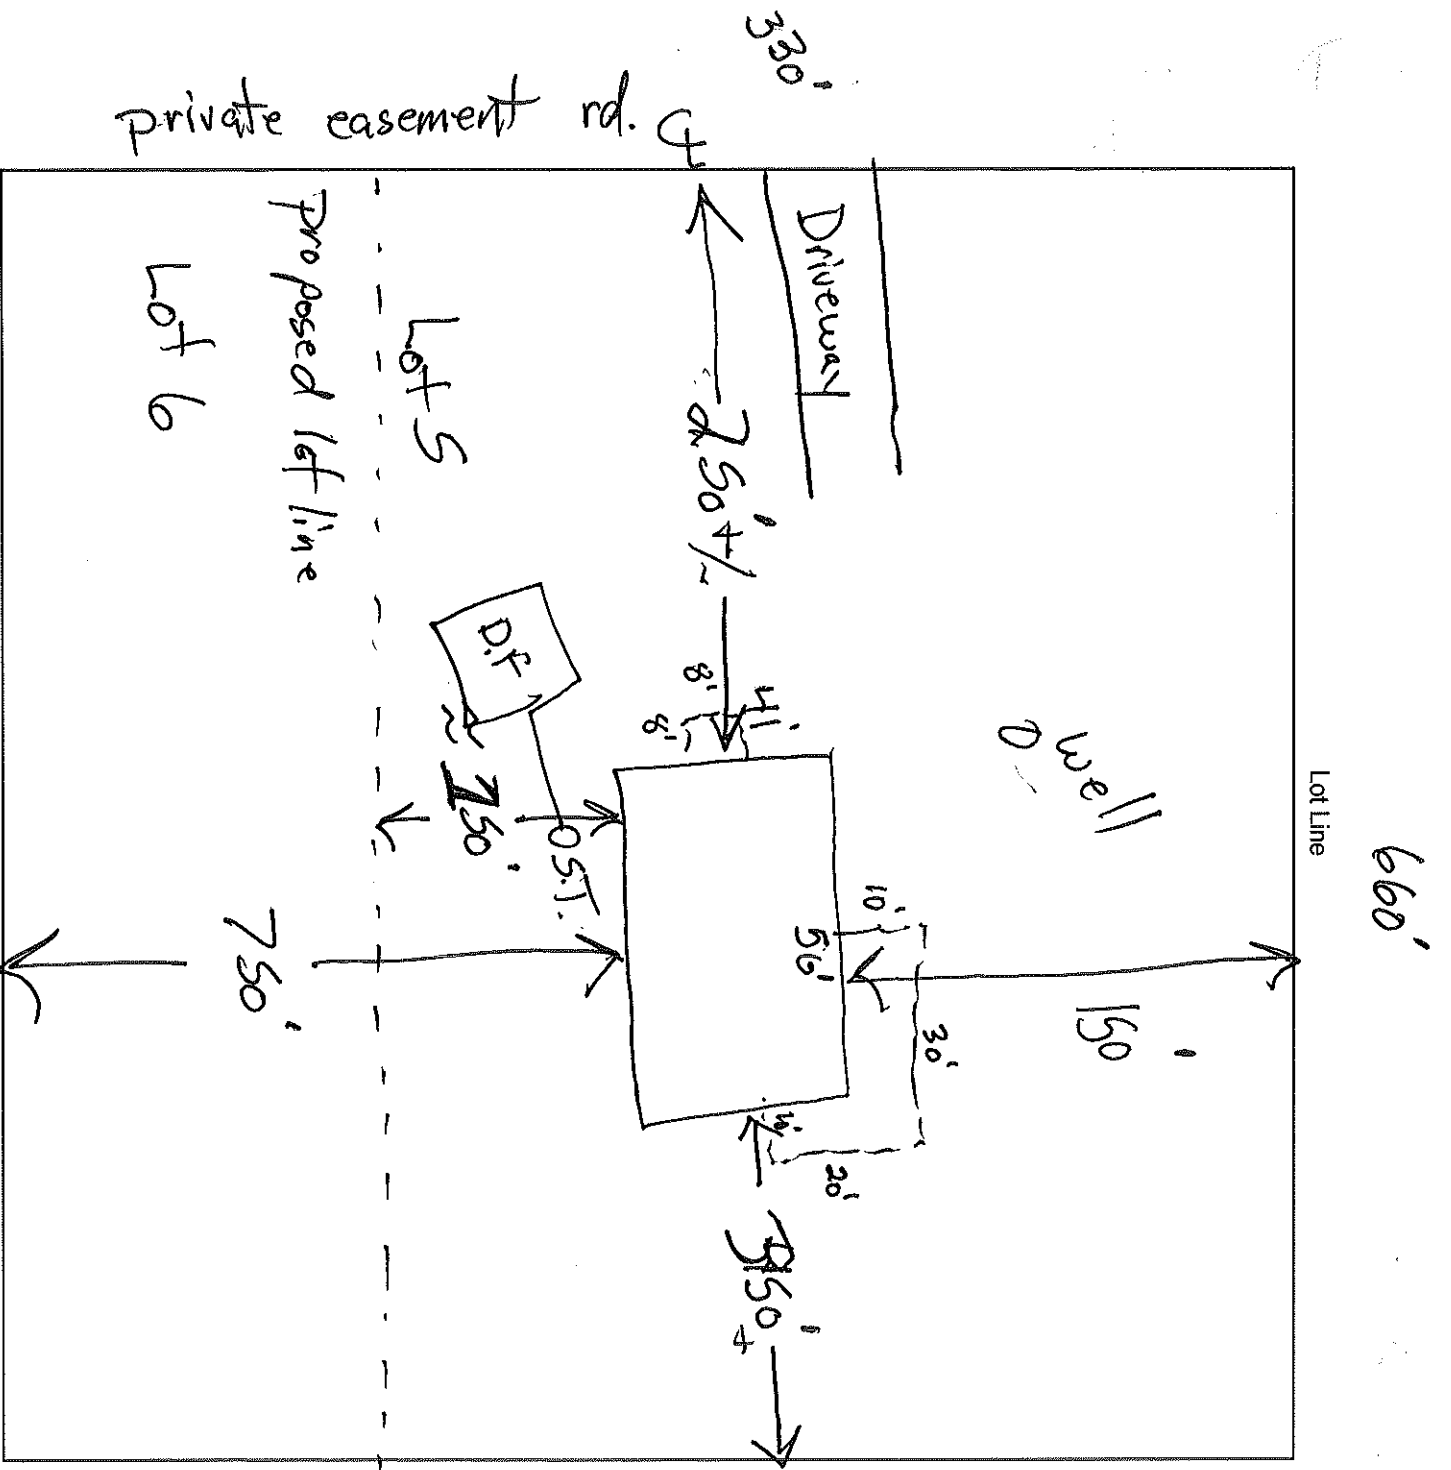 330'
private easement rd. ℄
Driveway
250' +/-
Lot 5
proposed lot line
Lot 6
D.F
8'
8'
4'
well
Lot Line
660'
150'
S.T.
750'
10'
56'
30'
150'
4'
20'